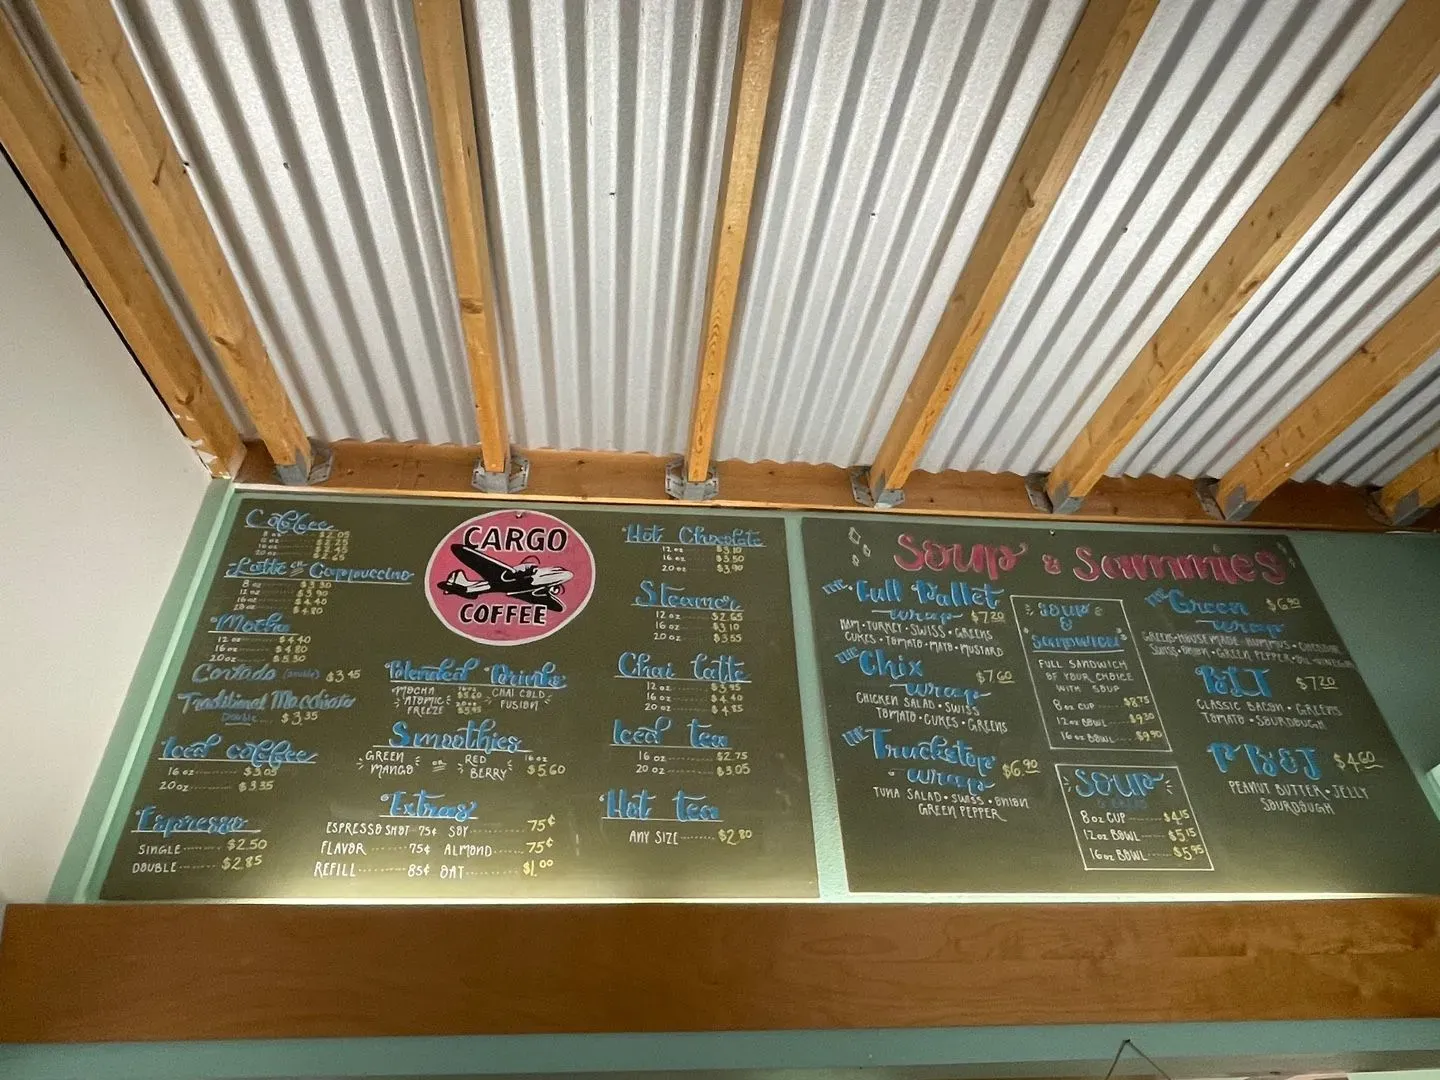 Coffee
8 oz $2.05
12 oz $2.25
16 oz $2.45
20 oz $2.65
Latte or Cappuccino
8 oz $3.30
12 oz $3.90
16 oz $4.40
20 oz $4.80
Mocha
12 oz $4.40
16 oz $4.80
20 oz $5.30
Cortado (double) $3.45
Traditional Macchiato
Double $3.35
Iced coffee
16 oz $3.05
20 oz $3.35
Espresso
SINGLE $2.50
DOUBLE $2.85
CARGO
COFFEE
Blended Drinks
MOCHA ATOMIC FREEZE
16 oz $5.60
20 oz $5.95
CHAI COLD FUSION
Smoothies
GREEN MANGO or RED BERRY 16 oz $5.60
Extras
ESPRESSO SHOT 75¢ SOY 75¢
FLAVOR 75¢ ALMOND 75¢
REFILL 85¢ OAT $1.00
Hot Chocolate
12 oz $3.10
16 oz $3.50
20 oz $3.90
Steamer
12 oz $2.65
16 oz $3.10
20 oz $3.55
Chai latte
12 oz $3.95
16 oz $4.40
20 oz $4.85
Iced tea
16 oz $2.75
20 oz $3.05
Hot tea
ANY SIZE $2.80
Soup & Sammies
THE Full Pallet
wrap $7.20
HAM • TURKEY • SWISS • GREENS
CUKES • TOMATO • MAYO • MUSTARD
THE Chix
wrap $7.60
CHICKEN SALAD • SWISS
TOMATO • CUKES • GREENS
THE Truckstop
wrap $6.90
TUNA SALAD • SWISS • ONION
GREEN PEPPER
SOUP
&
SANDWICH
FULL SANDWICH
OF YOUR CHOICE
WITH SOUP
8 oz CUP $8.75
12 oz BOWL $9.30
16 oz BOWL $9.90
SOUP
8 oz CUP $4.15
12 oz BOWL $5.15
16 oz BOWL $5.95
THE Green
wrap $6.90
GREENS • HOUSEMADE HUMMUS • CHEDDAR
SWISS • ONION • GREEN PEPPER • OIL • VINEGAR
BLT $7.20
CLASSIC BACON • GREENS
TOMATO • SOURDOUGH
PB&J $4.60
PEANUT BUTTER • JELLY
SOURDOUGH